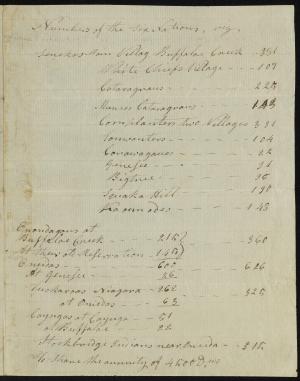 Numbers of the Six Nations, viz,
Senekas Main Village Buffaloe Creek - 351
White Chiefs Village - - - 107
Cataragaus - - - 225
Munsees Cataragaus - - - 143
Cornplanters two Villages 381
Tonwantas - - - 104
Conawagaus - - - 22
Genesee - - - 31
Bigtree - - - 96
Squaka Hill - - - 190
- - - 143
Onondagoes at
Buffaloe Creek - - - 215
At their old Reservation - - 145 } - - - 360
Oneidas - - - 600
At Genesee - - - 26 - - - 626
Tuskaroras Niagara - 262
at Oneidas - - 63 - - - 325
Cayugas at Cayuga - - 51
at Buffaloe - - 22
Stockbridge Indians near Oneida - - 315
To Share the annuity of 4500 D,